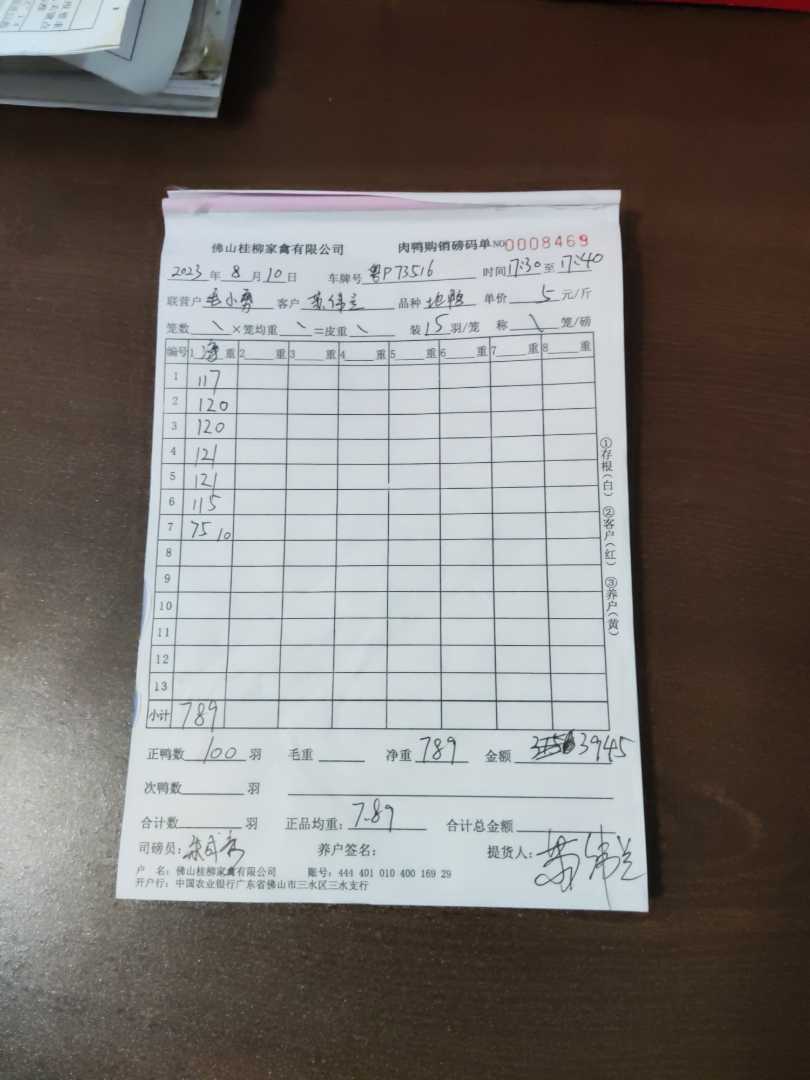 佛山桂柳家禽有限公司 肉鸭购销磅码单 NO 0008469
2023 年 8 月 10 日 车牌号 粤P73516 时间 17:30 至 17:40
联营户 毛小勇 客户 苏伟兰 品种 地鸭 单价 5 元/斤
笼数 \ ×笼均重 \ =皮重 \ 装 15 羽/笼 称 \ 笼/磅
编号 1 净 重 2 重 3 重 4 重 5 重 6 重 7 重 8 重
1 117
2 120
3 120
4 121
5 121
6 115
7 75 10
8
9
10
11
12
13
小计 789
①存根(白) ②客户(红) ③养户(黄)
正鸭数 100 羽 毛重 净重 789 金额 3945
次鸭数 羽
合计数 羽 正品均重: 7.89 合计总金额
司磅员: 养户签名: 提货人: 苏伟兰
户 名: 佛山桂柳家禽有限公司 账号: 444 401 010 400 169 29
开户行: 中国农业银行广东省佛山市三水区三水支行